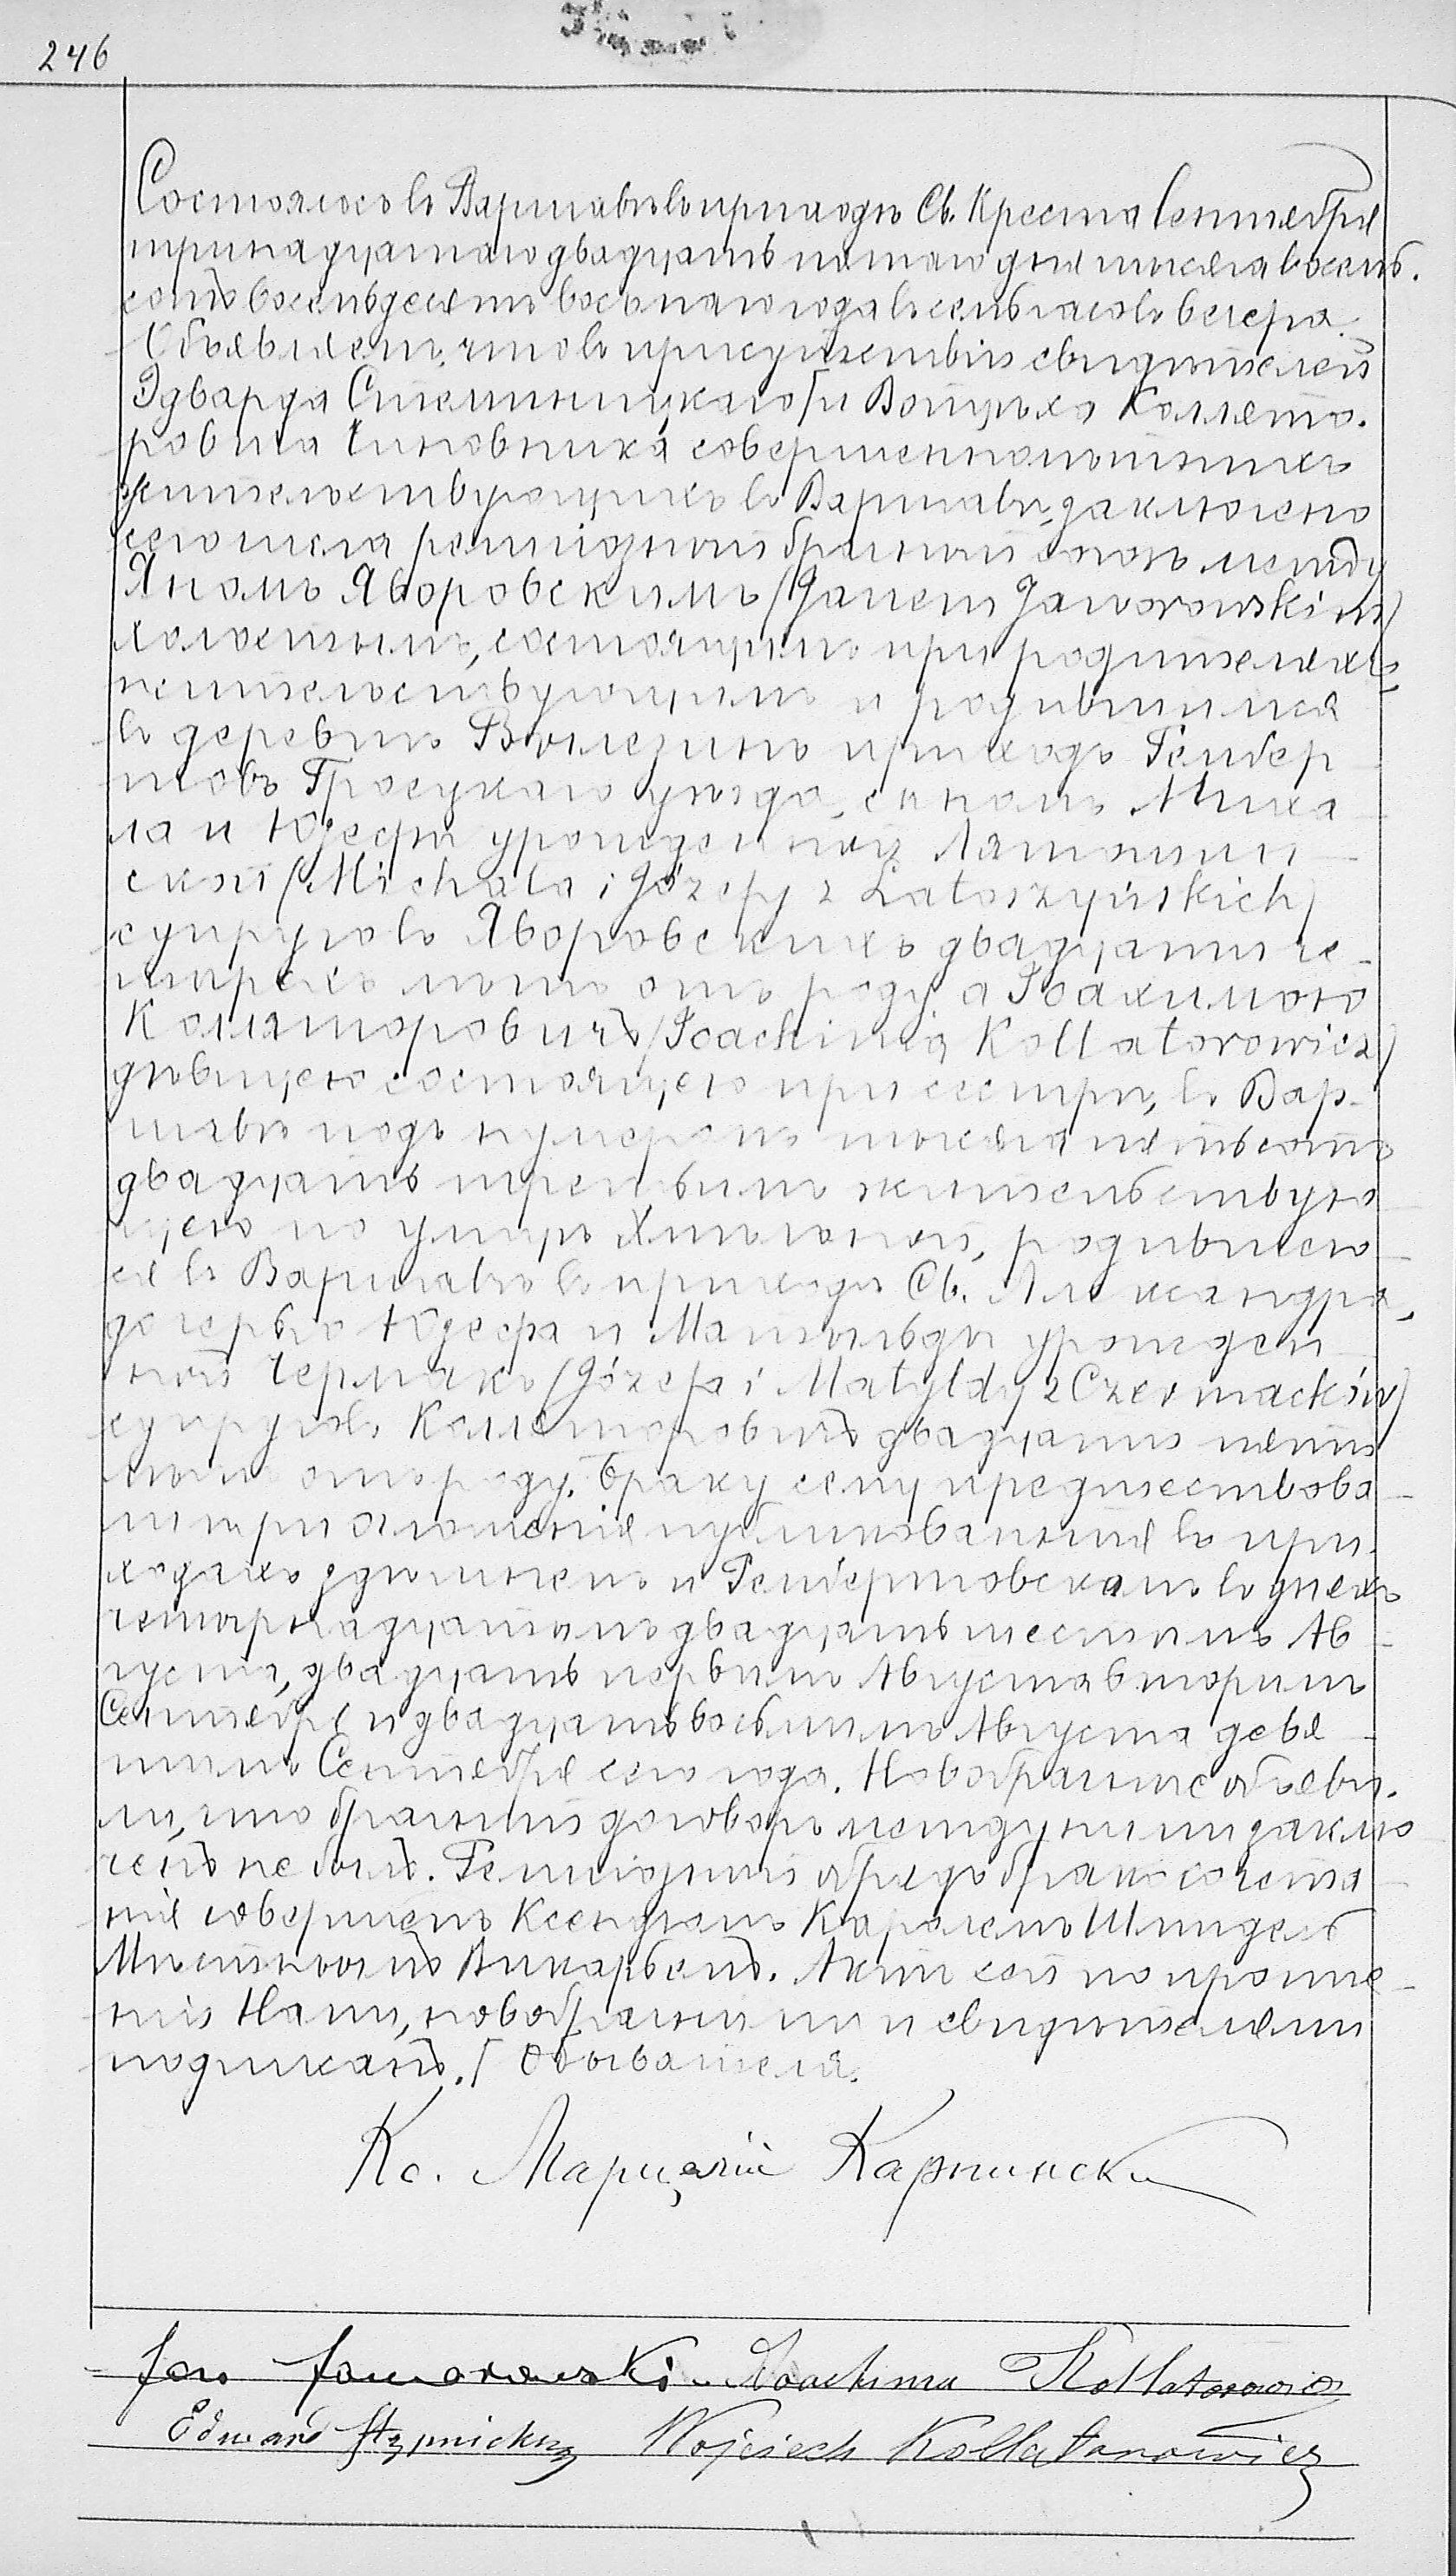 246
Состоялось въ Варшавѣ въ приходѣ Св. Креста Сентября
тринадцатаго двадцать пятаго дня тысяча восемь.
сотъ восемьдесятъ восьмаго года въ семь часовъ вечера.
Объявляемъ, что въ присутствіи свидѣтелей
Эдварда Стемпницкаго/и Войцѣха Коллято.
ровича Чиновника совершеннолѣтнихъ
жительствующихъ въ Варшавѣ, заключено
сего числа религіозный брачный союзъ между
Яномъ Яворовскимъ (Janem Jaworowskim)
холостымъ, состоящимъ при родителяхъ,
жительствующимъ и родившимся
въ деревнѣ приходѣ
Гроецкаго уѣзда, сыномъ Миха
ла и Юзефы урожденной Лятошин
ской (Michała i Józefy z Latoszyńskich)
супруговъ Яворовскихъ двадцати че-
тырехъ лѣтъ отъ роду а Іоахимою
Коляторовичъ (Joachimą Kollatorowicz)
дѣвицею состоящею при сестрѣ, въ Вар-
шавѣ подъ нумеромъ тысяча пятьсотъ
двадцать третьимъ жительствую
щею по улицѣ Хмѣльной, родившею
ся въ Варшавѣ въ приходѣ Св. Александра,
дочерью Юзефа и Матыльды урожден
ной Чермакъ (Józefa i Matyldy z Czermacków)
супруговъ Колляторовичъ двадцати пяти
лѣтъ отъ роду. Браку сему предшествова
ли три оглашенія публикованныя въ при.
ходахъ здѣшнемъ и въ дняхъ
четырнадцатомъ двадцать шестомъ Ав
густа, двадцать первымъ Августа вторымъ
Сентября и двадцать восьмымъ Августа девя
тымъ Сентября сего года. Новобрачные объяви.
ли, что брачный договоръ между ними заклю
ченъ не былъ. Религіозный обрядъ бракосочета
нія совершенъ Ксендзомъ Каролемъ
Мѣстнымъ Викарьемъ. Актъ сей по прочте-
ніи Нами, новобрачными и свидѣтелями
подписанъ. / Обывателя.
Кс. Марцелій Карпински
Jan Jaworowski Joachima Kollatorowicz
Edward Stępnicki Wojciech Kollatorowicz